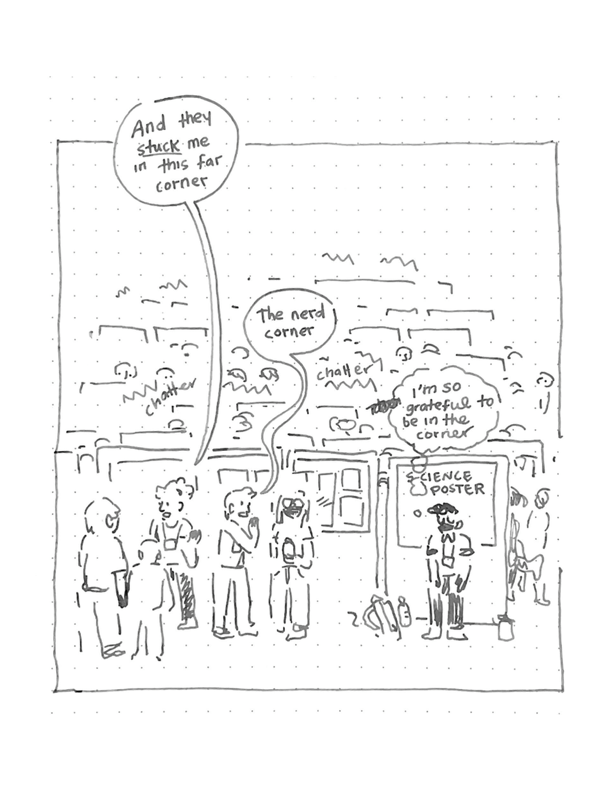 And they
stuck me
in this far
corner
The nerd
corner
chatter
chatter
I'm so
grateful to
be in the
corner
SCIENCE
POSTER